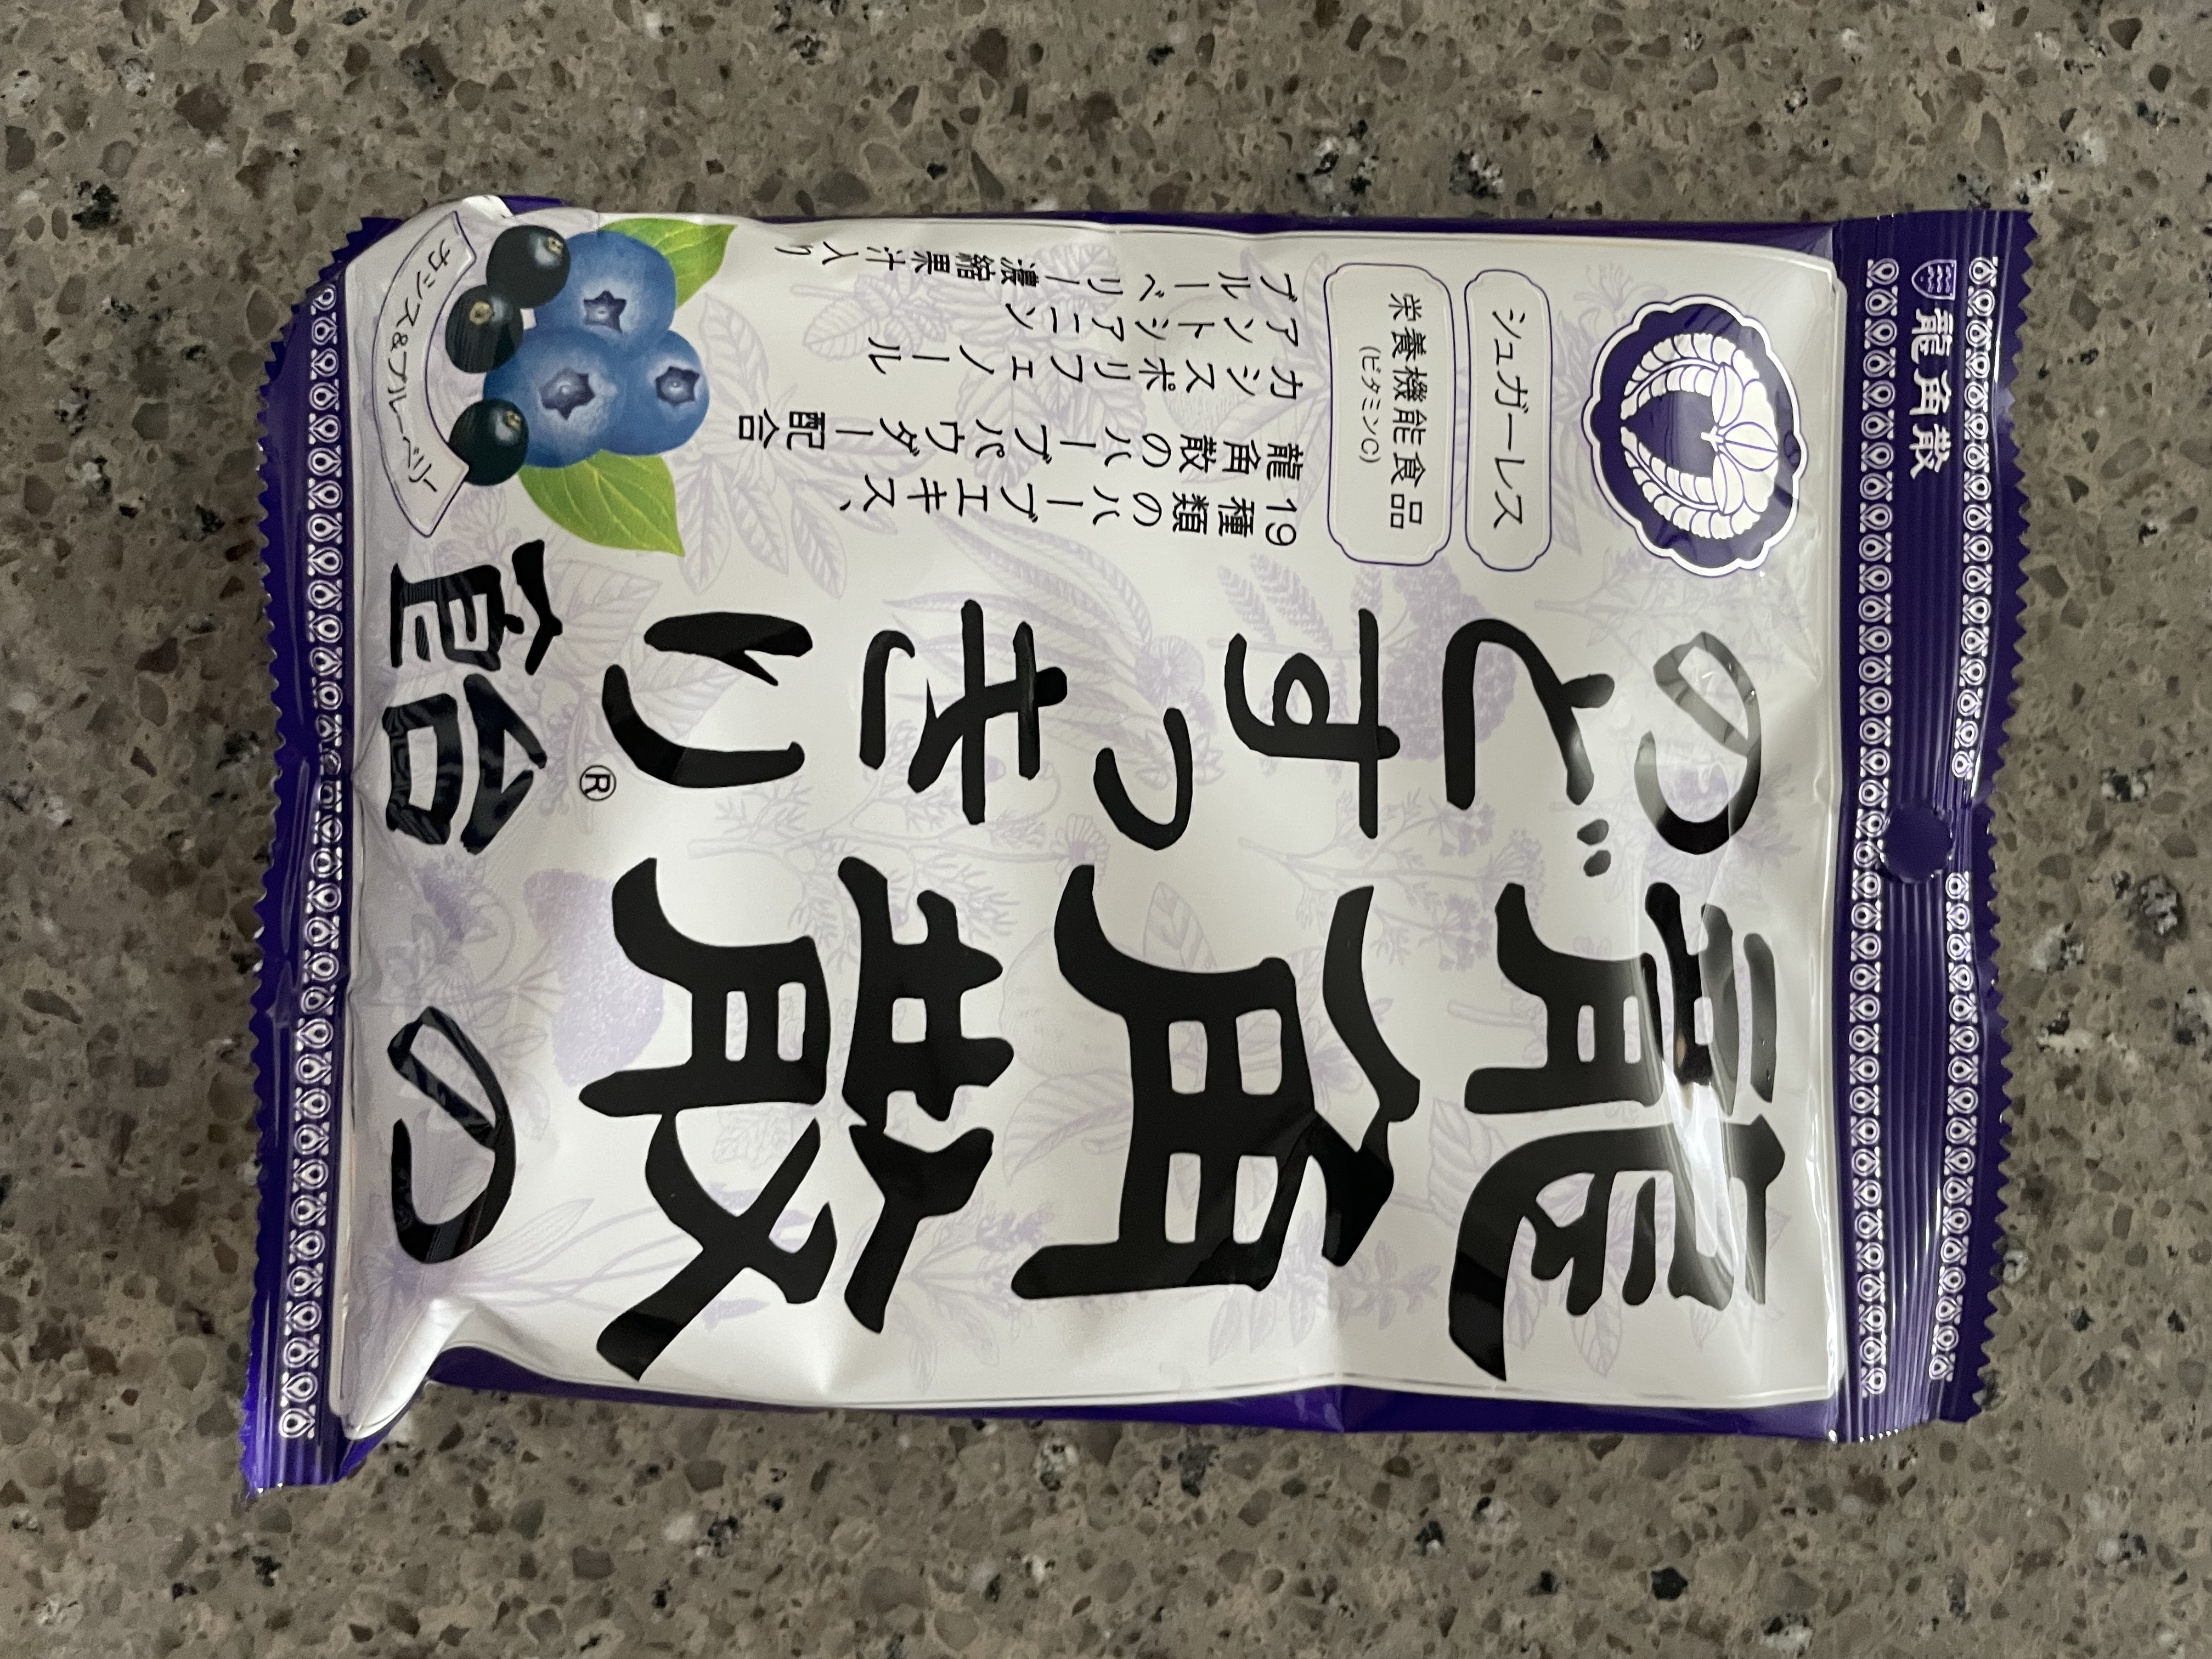 龍角散
シュガーレス
栄養機能食品
(ビタミンC)
龍角散の
のどすっきり®飴
19種類のハーブエキス、
龍角散のハーブパウダー配合
カシスポリフェノール
アントシアニン
ブルーベリー濃縮果汁入り
カシス&ブルーベリー